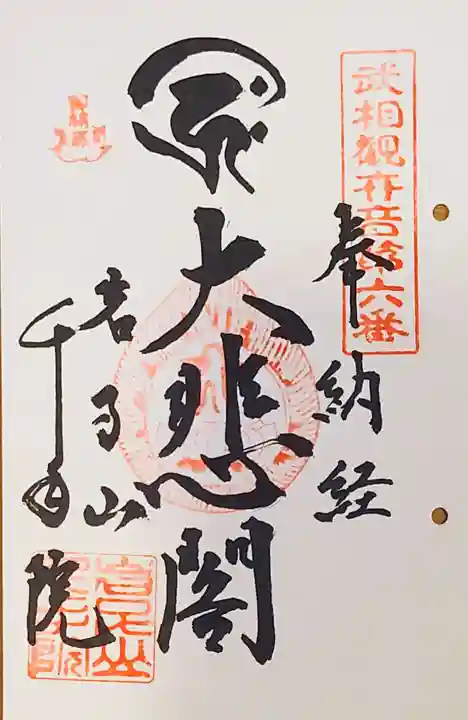 武相観音第六番
奉納経
大悲閣
千手院